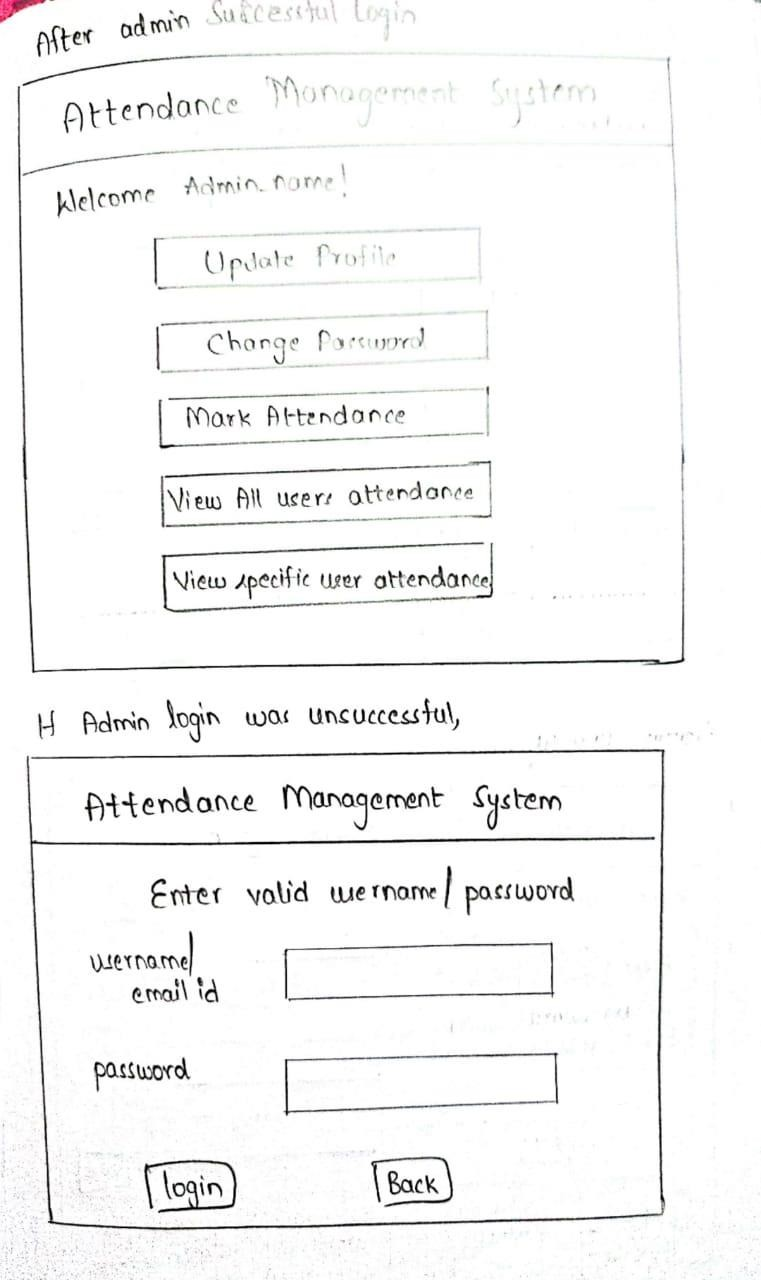 After admin Successful Login
Attendance Management System
Welcome Admin_name!
Update Profile
Change Password
Mark Attendance
View All users attendance
View specific user attendance
If Admin login was unsuccessful,
Attendance Management System
Enter valid username/ password
username/
email id
password
login
Back